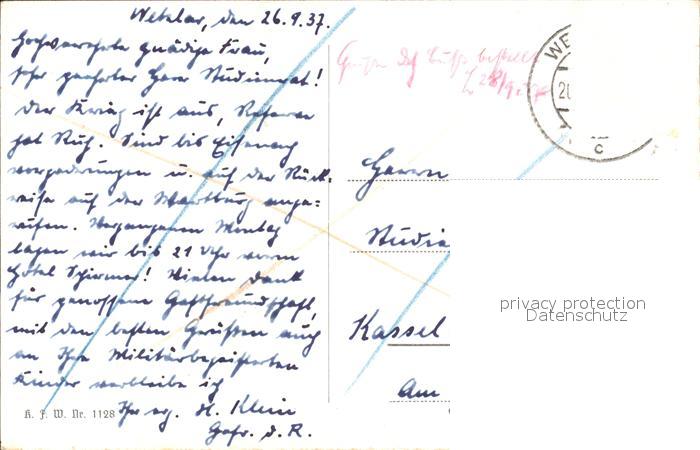 Wetzlar, den 26.9.37.
Hochverehrte gnädige Frau,
sehr geehrter Herr Studienrat!
Der Krieg ist aus, Reserve
hat Ruh. Sind bis Eisenach
vorgedrungen u. auf der Rück-
reise auf der Wartburg ange=
rufen. Vergangenen Montag
lagen wir bis 21 Uhr vorm
Hotel Schirmer! Vielen Dank
für genossene Gastfreundschaft,
mit den besten Grüßen auch
an Ihre Militärbegeisterten
Kinder verbleibe ich
Ihr erg. H. Klein
Gefr. d. R.
K. F. W. Nr. 1128
bestellt
28/9.
WE
c
Herrn
Studie
Kassel
Am
privacy protection
Datenschutz